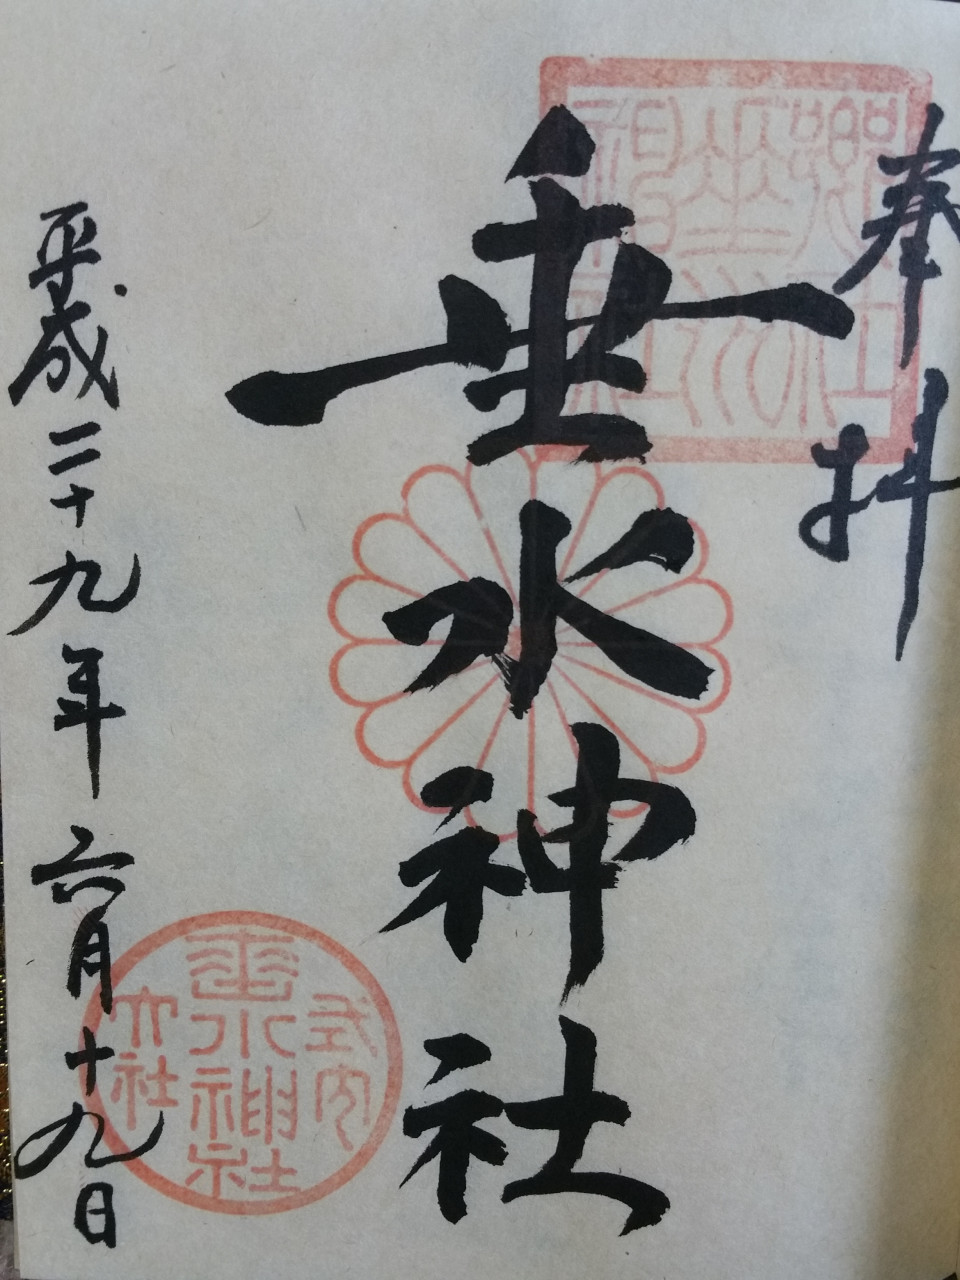 奉拝
垂水神社
平成二十九年六月十九日
式内
垂水神社
大社